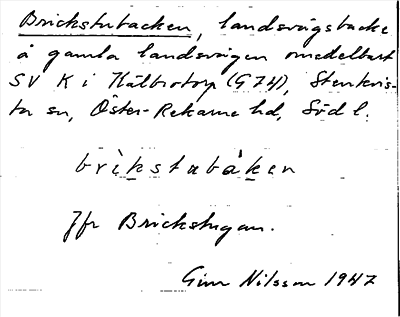 Brickstubacken, landsvägsbacke
å gamla landsvägen omedelbart
SV K i Hälbotorp (G74), Stenkvis-
ta sn, Öster-Rekarne hd, Södl.
brìkstubáken
Jfr Brickstugan.
Nilsson 1947